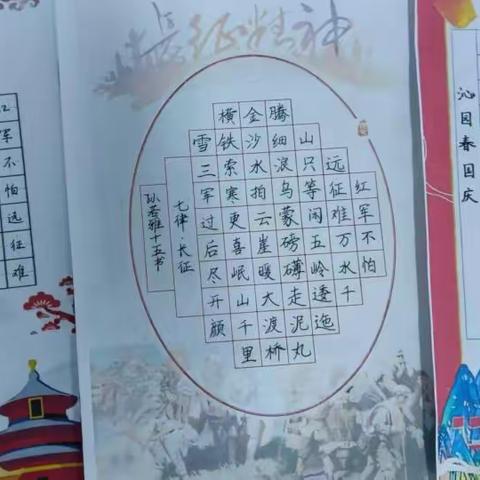 长征精神
沁园春国庆
红军不怕
远征难万水千
山只等闲五岭逶迤
腾细浪乌蒙磅礴走泥丸
金沙水拍云崖暖大渡桥
横铁索寒更喜岷山千里
雪三军过后尽开颜
七律·长征
孙若雅十五书
军不怕远征难